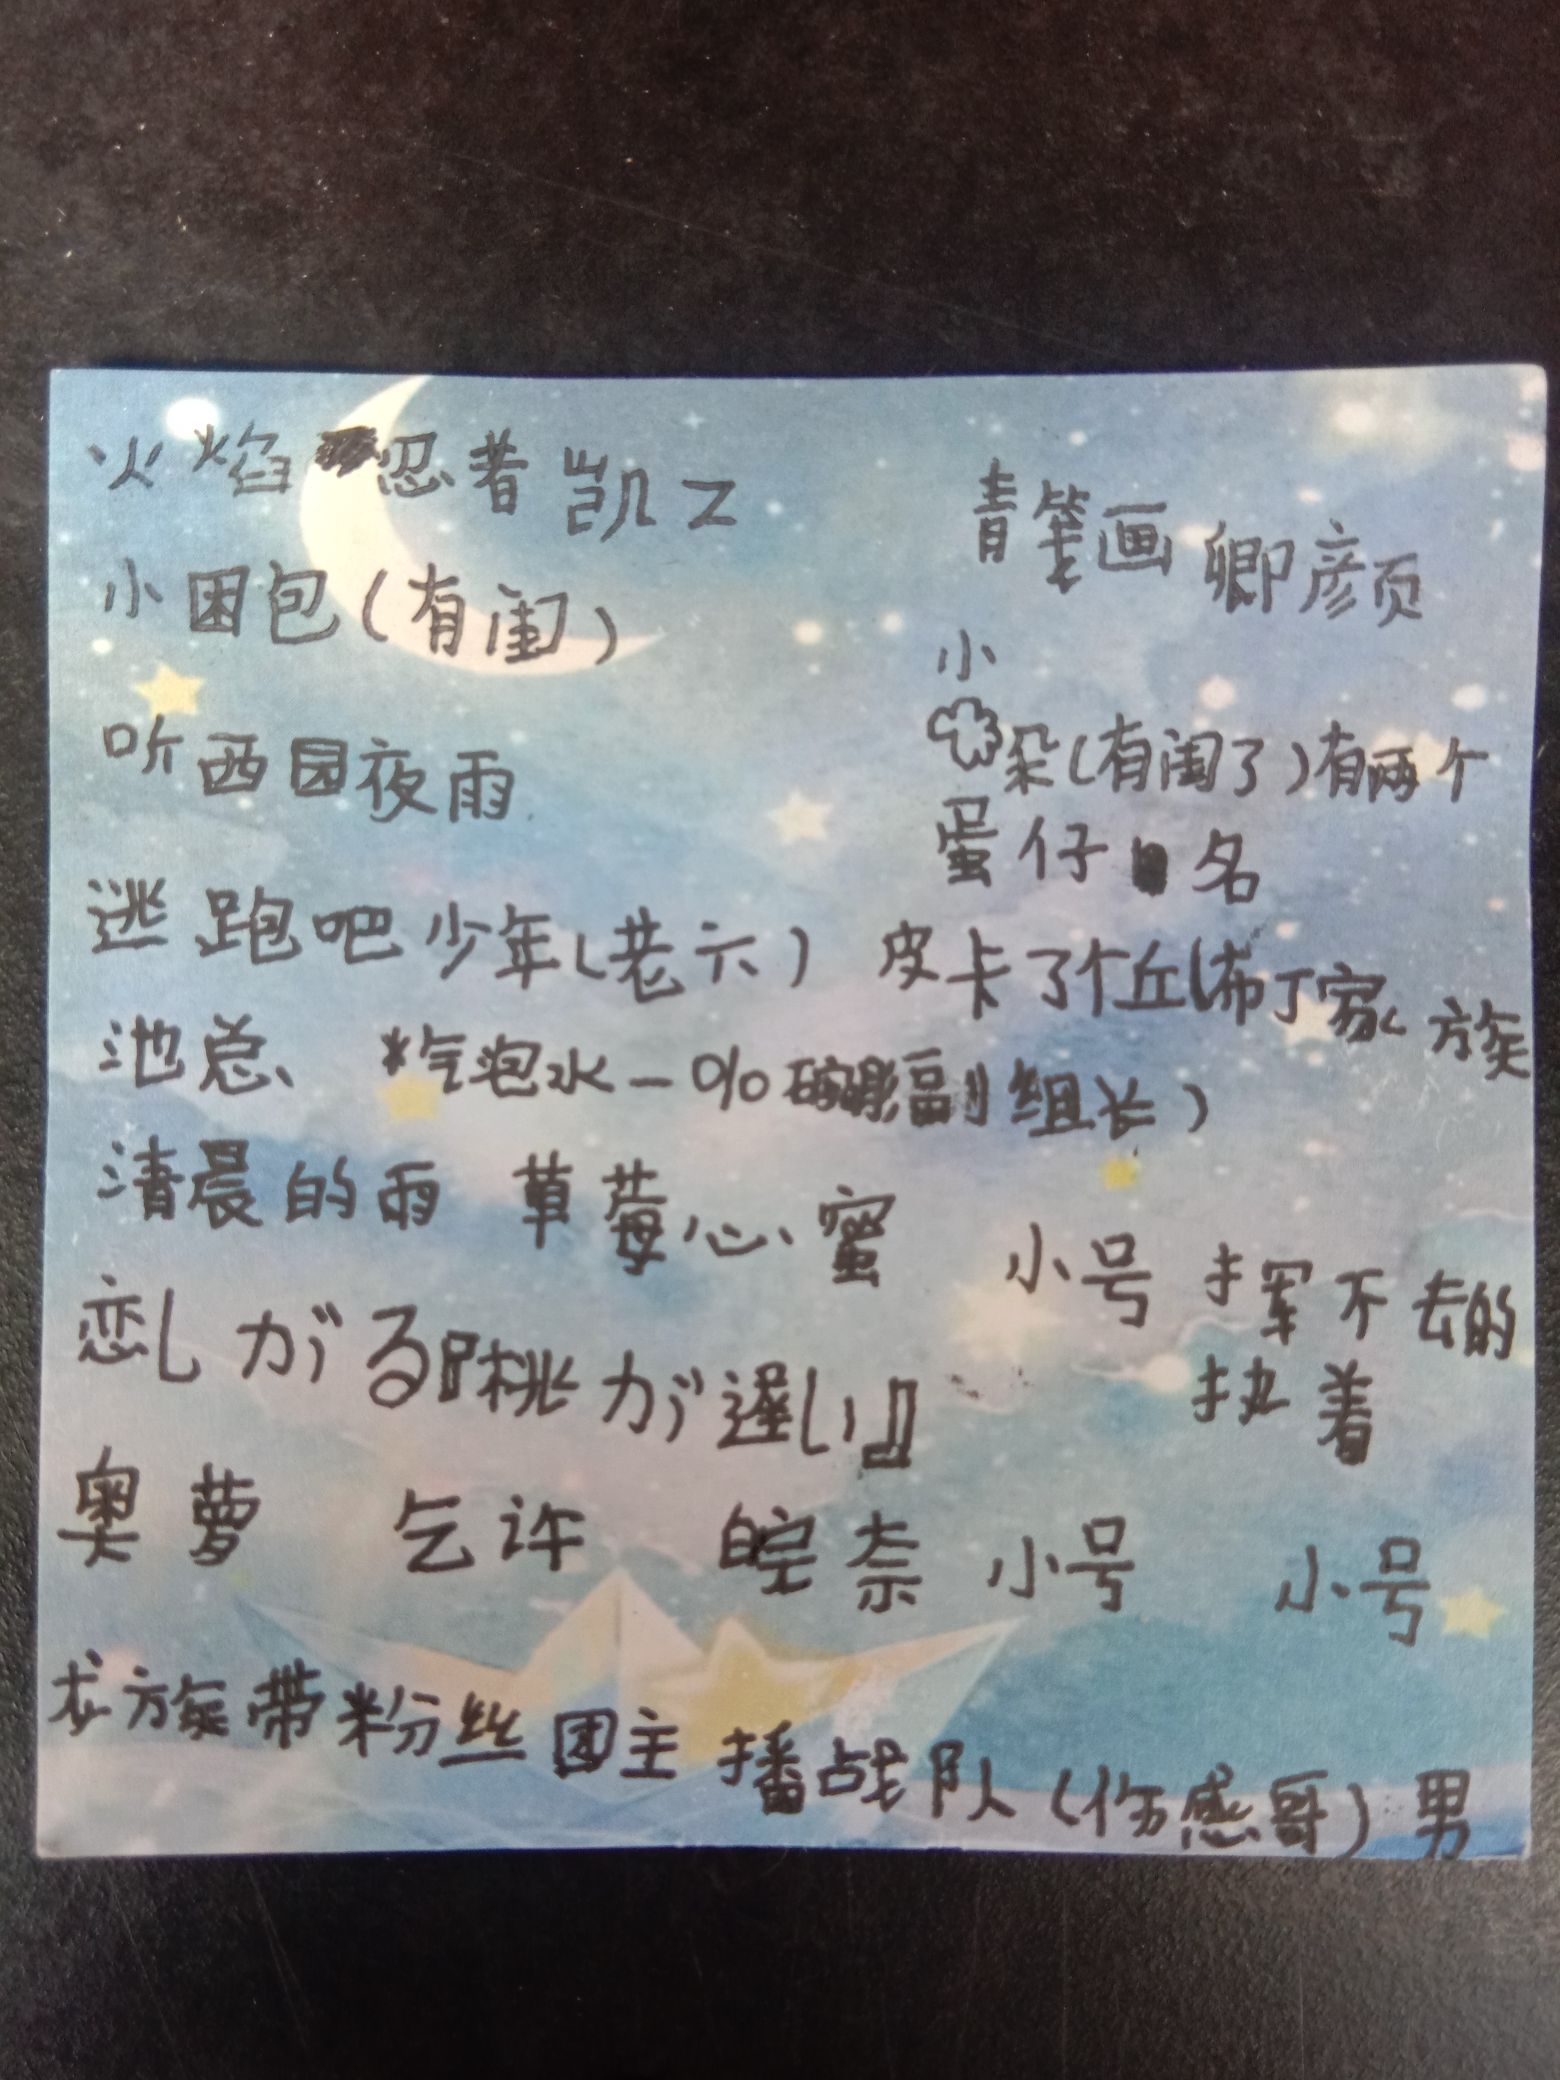 火焰忍者凯乙
青笔画 卿颜
小困包(有闺)
小
朵(有闺了)有两个
听西园夜雨
蛋仔名
逃跑吧少年(老六)
皮卡了个丘(布丁家族
池总 *汽泡水-0%副组长)
清晨的雨 草莓心蜜
小号 挥不去的
执着
恋しがる『桃が遅い』
奥萝 乞许 皖奈 小号 小号
龙族带粉丝团主播战队(伤感哥)男